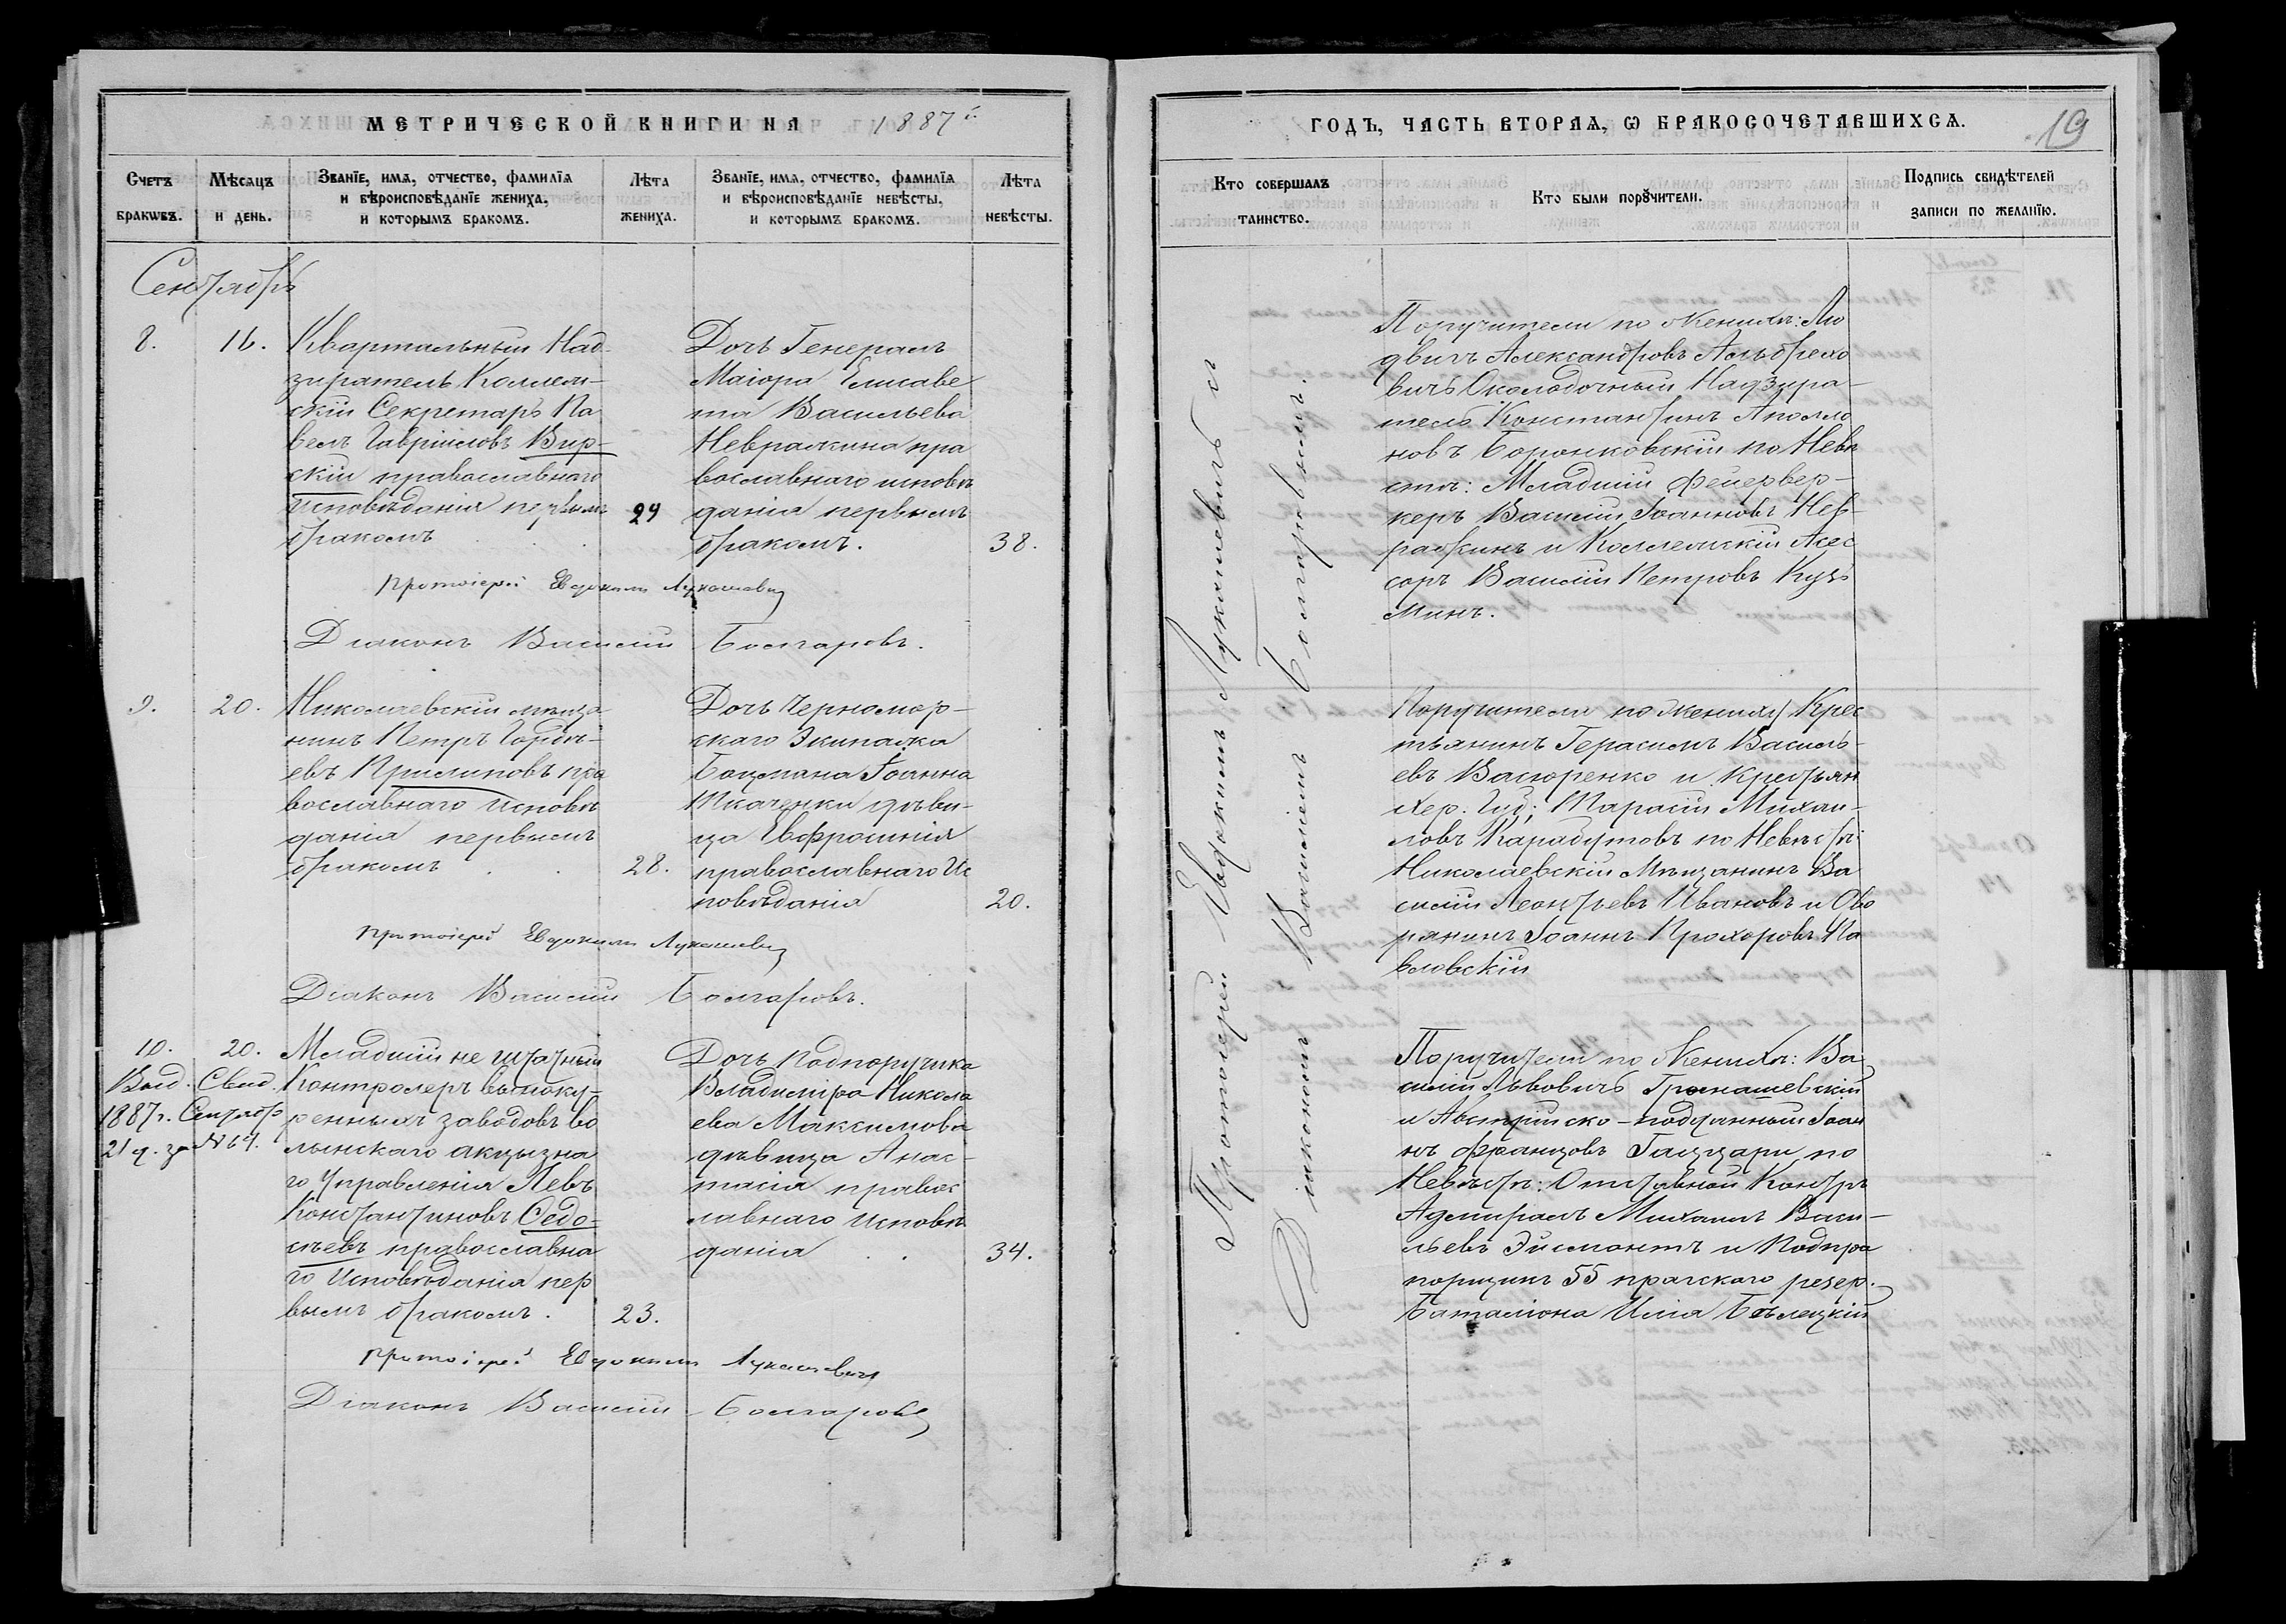 МЕТРИЧЕСКОЙ КНИГИ НА 1887 г.
Счетъ браковъ.
Мѣсяцъ и день.
Званіе, имя, отчество, фамилія
и вѣроисповѣданіе жениха,
и которымъ бракомъ.
Лѣта жениха.
Званіе, имя, отчество, фамилія
и вѣроисповѣданіе невѣсты,
и которымъ бракомъ.
Лѣта невѣсты.
Сентябрь
8.
16.
Квартальный Над-
зиратель Коллеж-
скій Секретарь Па
велъ Гавріиловъ Вир-
скій православнаго
исповѣданія первымъ
бракомъ
24
Дочь Генералъ
Маіора Елисаве
та Васильева
Невражина пра
вославнаго исповѣ
данія первымъ
бракомъ.
38.
Протоіерей Евдокимъ Лукашевич
Діаконъ Василій Болгаровъ.
9.
20.
Николаевскій мѣща
нинъ Петръ Гордѣ-
евъ Прилиповъ пра
вославнаго исповѣ
данія первымъ
бракомъ
28.
Дочь Черномор-
скаго Экипажа
Боцмана Іоанна
Ткаченки дѣви-
ца Евфросинія
православнаго Ис
повѣданія
20.
Протоіерей Евдокимъ Лукашевич
Діаконъ Василій Болгаровъ.
10.
20.
Выд. Свид.
1887 г. Сентябр
21 д. за № 64.
Младшій не штатный
Контролеръ виноку-
ренныхъ заводовъ во
лынскаго акцызна
го Управленія Левъ
Константиновъ Седо-
лѣевъ православна
го Исповѣданія пер
вымъ бракомъ.
23.
Дочь Подпоручика
Владиміра Никола
ева Максимова
дѣвица Анас-
тасія правос
лавнаго исповѣ
данія
34.
Протоіерей Евдокимъ Лукашевичъ
Діаконъ Василій Болгаровъ
ГОДЪ, ЧАСТЬ ВТОРАЯ, Ѡ БРАКОСОЧЕТАВШИХСЯ.
19
Кто совершалъ таинство.
Кто были поручители.
Подпись свидѣтелей
записи по желанію.
Протоіерей Евдокимъ Лукашевичъ съ
Діакономъ Василіемъ Болгаровымъ.
Поручители по Женихѣ: Лю
двигъ Александровъ Альбрехо
вичъ Околодочный Надзира-
тель Константинъ Аполло
новъ Боронковскій по Невѣ
стѣ: Младшій фейервер-
керъ Василій Іоанновъ Нев-
ражинъ и Коллежскій Асес
соръ Василій Петровъ Кузь
минъ.
Поручители по Женихѣ Крес
тьянинъ Герасимъ Василь-
евъ Васюренко и крестьян
Хер. Губ; Тарасій Михаи-
ловъ Карабутовъ по Невѣстѣ:
Николаевскій Мѣщанинъ Ва
силій Леонтьевъ Ивановъ и Дво
рянинъ Іоаннъ Прохоровъ Па
вловскій
Поручители по Женихѣ: Ва
силій Львовичъ Гронашевскій
и Австрійско-подданный Іоан
нъ Францовъ Гаццари по
Невѣстѣ: Отставной Контръ
Адмиралъ Михаилъ Васи-
льевъ Эйсмонтъ и Подпра
порщикъ 55 пражскаго резер.
Баталіона Илія Бѣлецкій